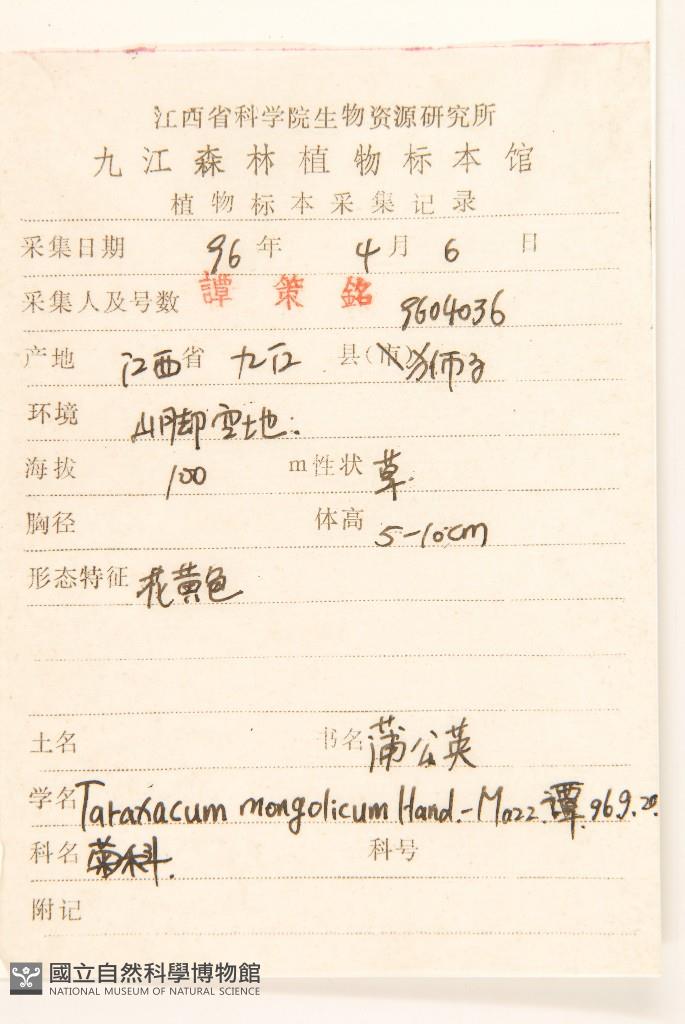 江西省科学院生物资源研究所
九江森林植物标本馆
植物标本采集记录
采集日期 96 年 4 月 6 日
采集人及号数 譚策銘 9604036
产地 江西 省 九江 县(市) 狮子
环境 山脚空地.
海拔 100 m 性状 草.
胸径 体高 5-10cm
形态特征 花黄色
土名 书名 蒲公英
学名 Taraxacum mongolicum Hand.-Mazz. 譚 96.9.20.
科名 菊科.  科号
附记
國立自然科學博物館
NATIONAL MUSEUM OF NATURAL SCIENCE